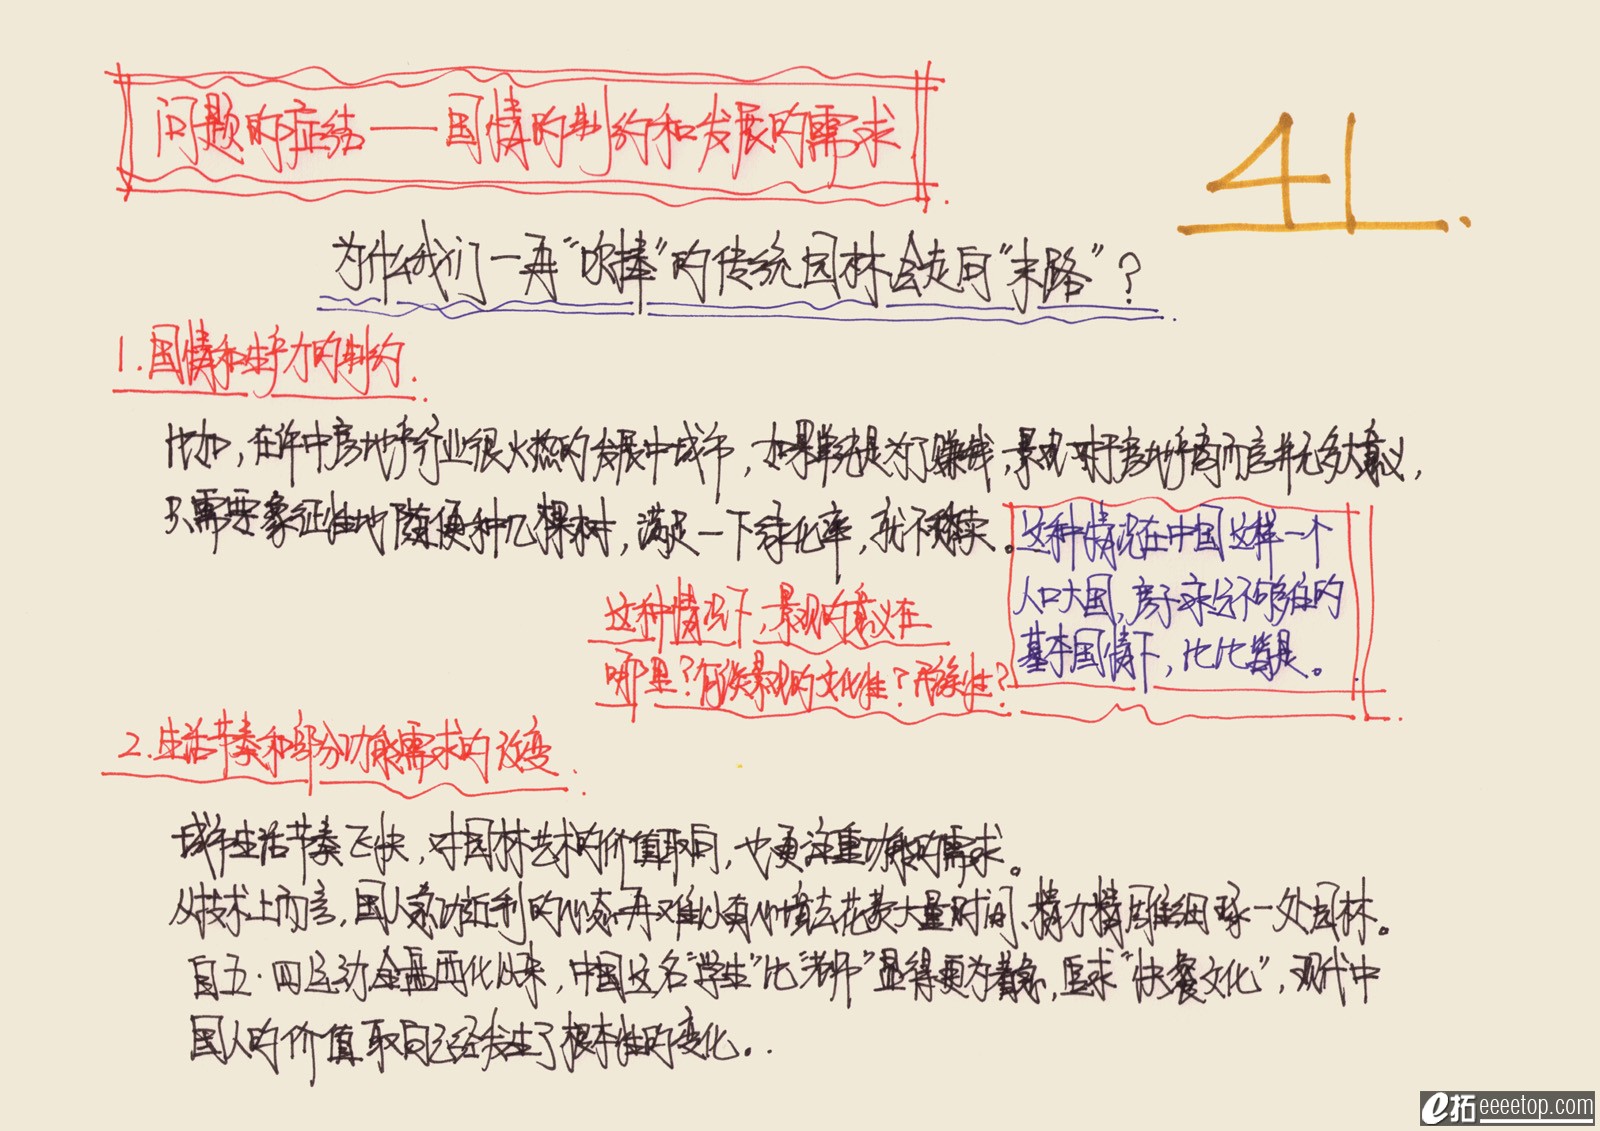 问题的症结——国情的制约和发展的需求
41.
为什么我们一再“吹捧”的传统园林会走向“末路”？
1.国情和生产力的制约.
比如,在许中房地产行业很火热的发展中城市,如果单纯是为了赚钱,景观对于房地产商而言并无多大意义,
只需要象征性地随便种几棵树,满足一下绿化率,就不愁卖。
这种情况在中国这样一个
人口大国,房子永远不够住的
基本国情下,比比皆是。
这种情况下,景观的意义在
哪里?何谈景观的文化性?民族性?
2.生活节奏和部分功能需求的改变.
城市生活节奏飞快,对园林艺术的价值取向,也更注重功能的需求。
从技术上而言,国人急功近利的心态再难以有心境去花费大量时间、精力精雕细琢一处园林。
自五·四运动全盘西化以来,中国这名“学生”比“老师”显得更为着急,追求“快餐文化”,现代中
国人的价值取向已经发生了根本性的变化..
e拓 eeeetop.com